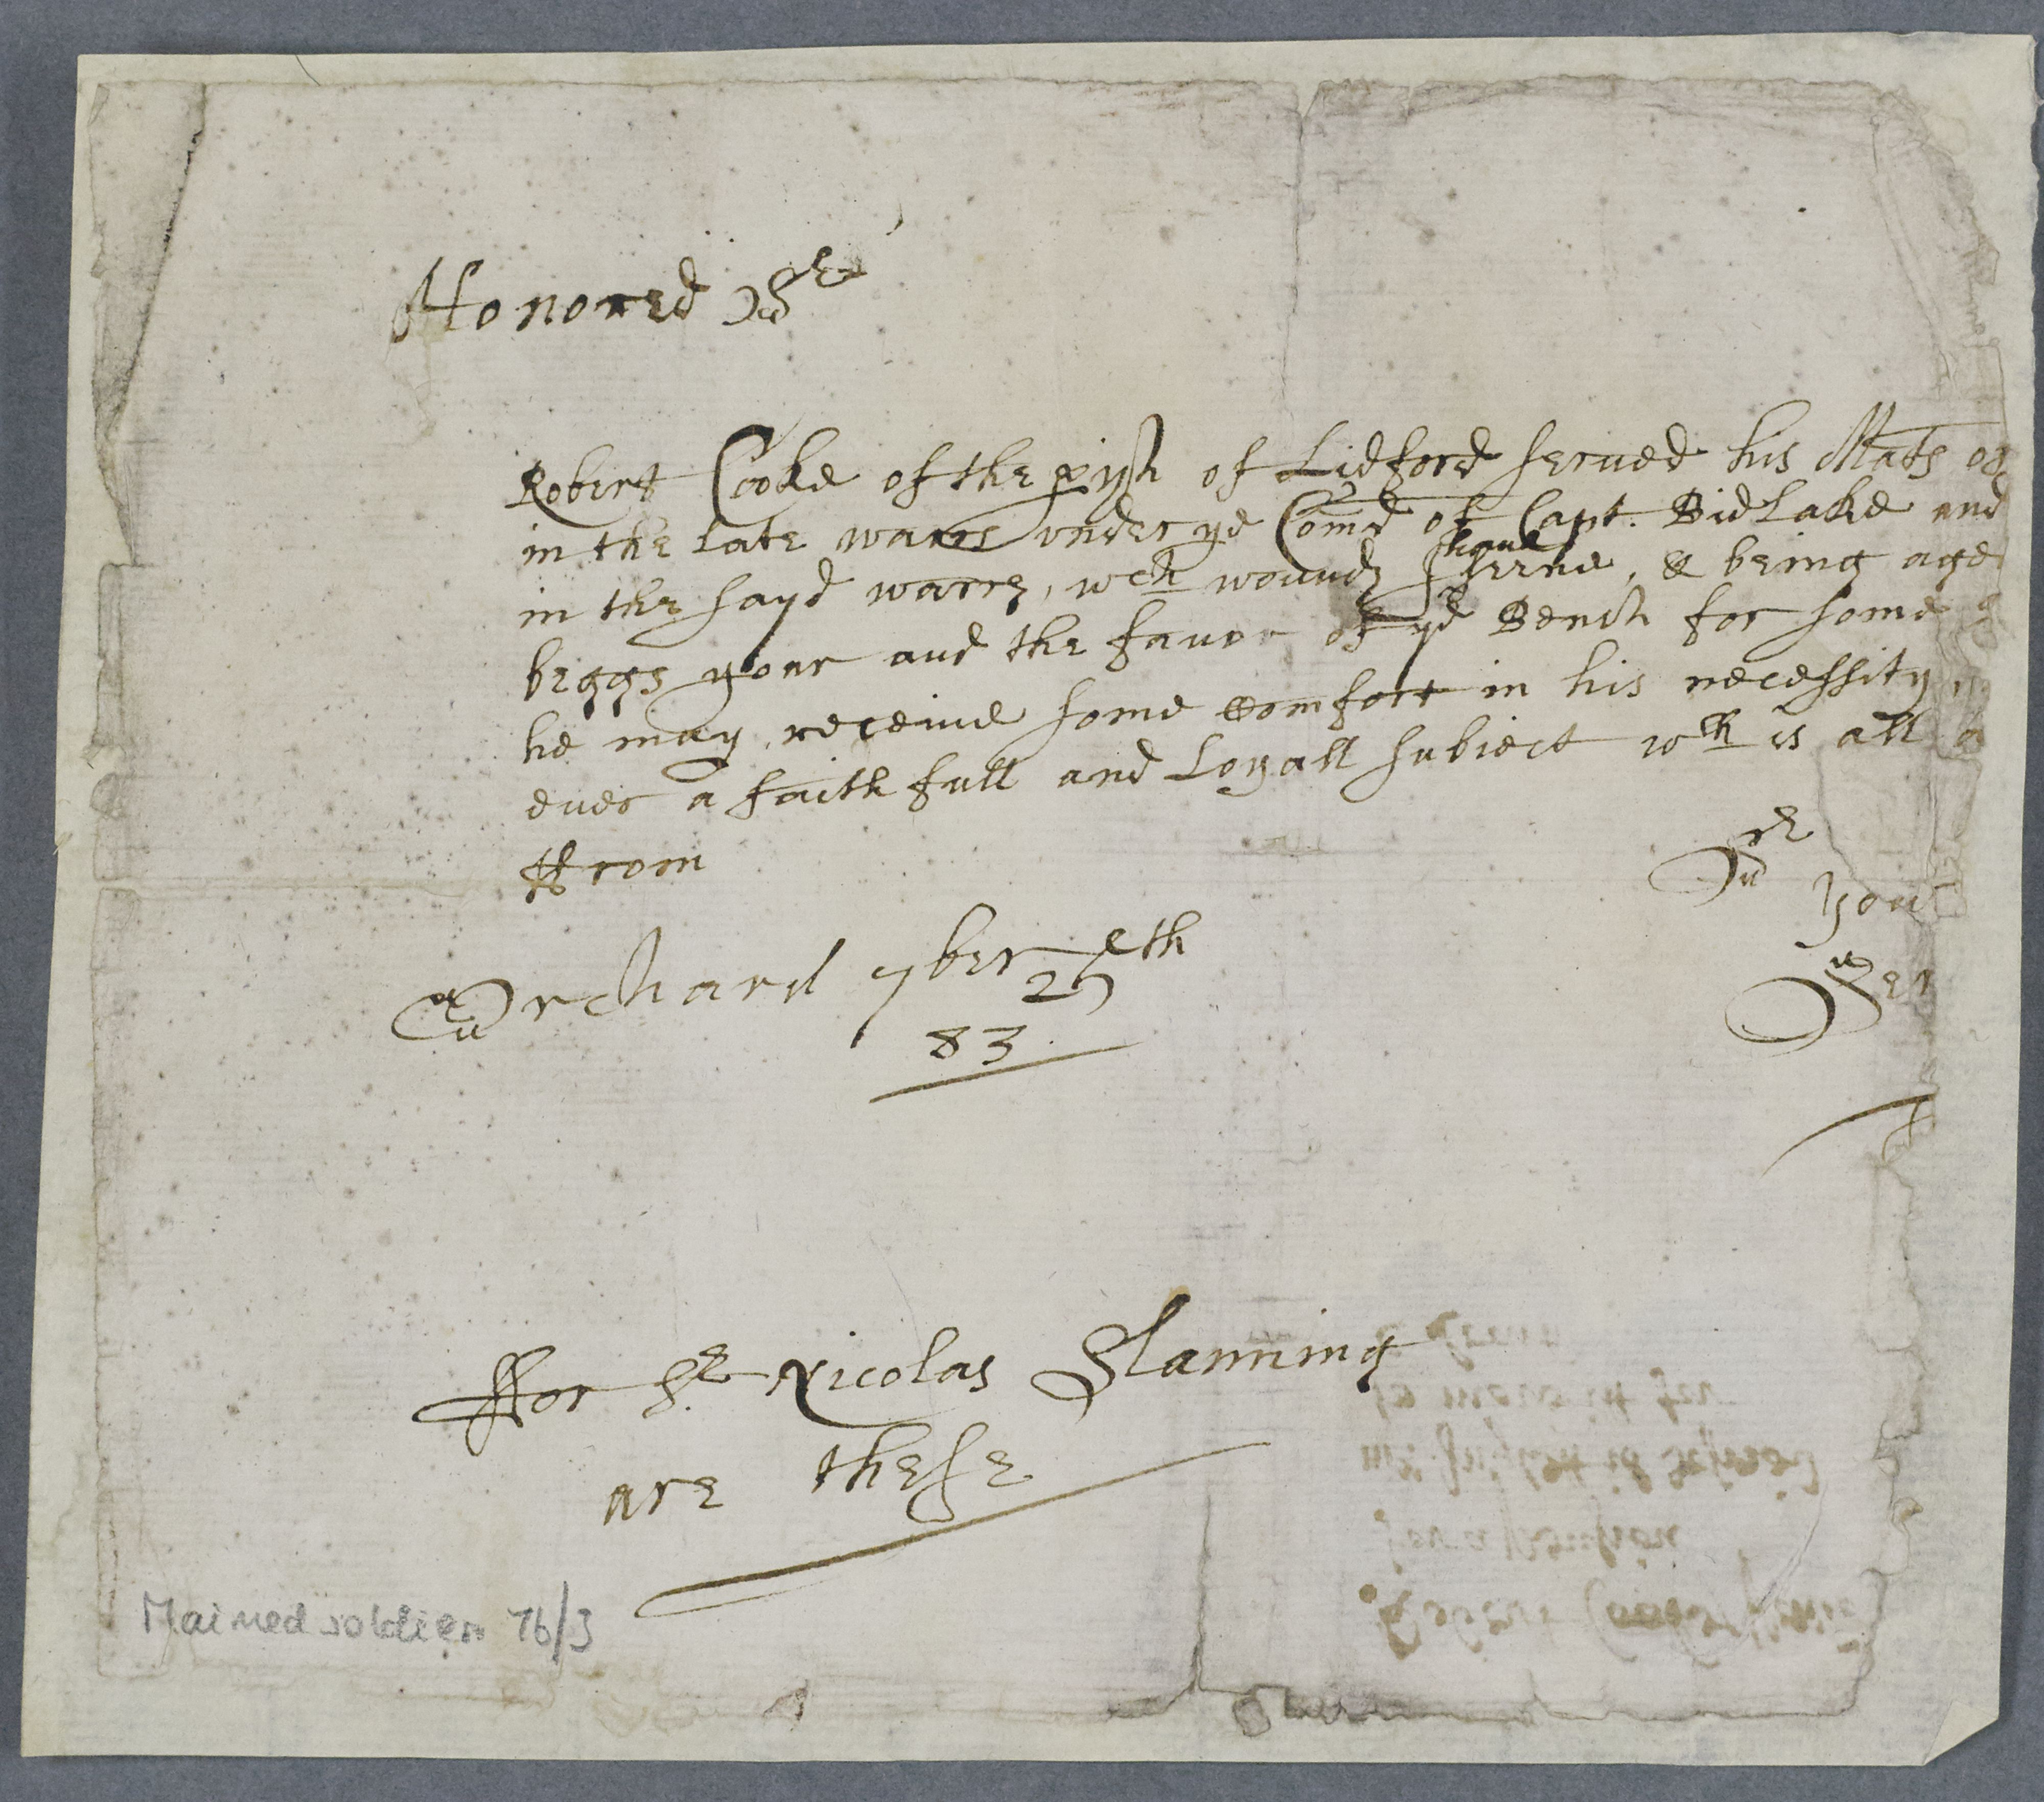 Honored Sr
Robert Cooke of the pish of Lidford serued his Mats of
in the late warrs vnder ye Comd of Capt. Bidlake and
in the sayd warrs, wch wounds I haue seene, & being age
beggs your and the favor of ye Bench for some
he may receiue some comfort in his necessity,
euer a faithfull and Loyall subiect wch is all a
ffrom
Sr
your
Ser
Orchard 7ber 25th
83
ffor Sr Nicolas Slanning
are these
Maimed soldiers 76/3